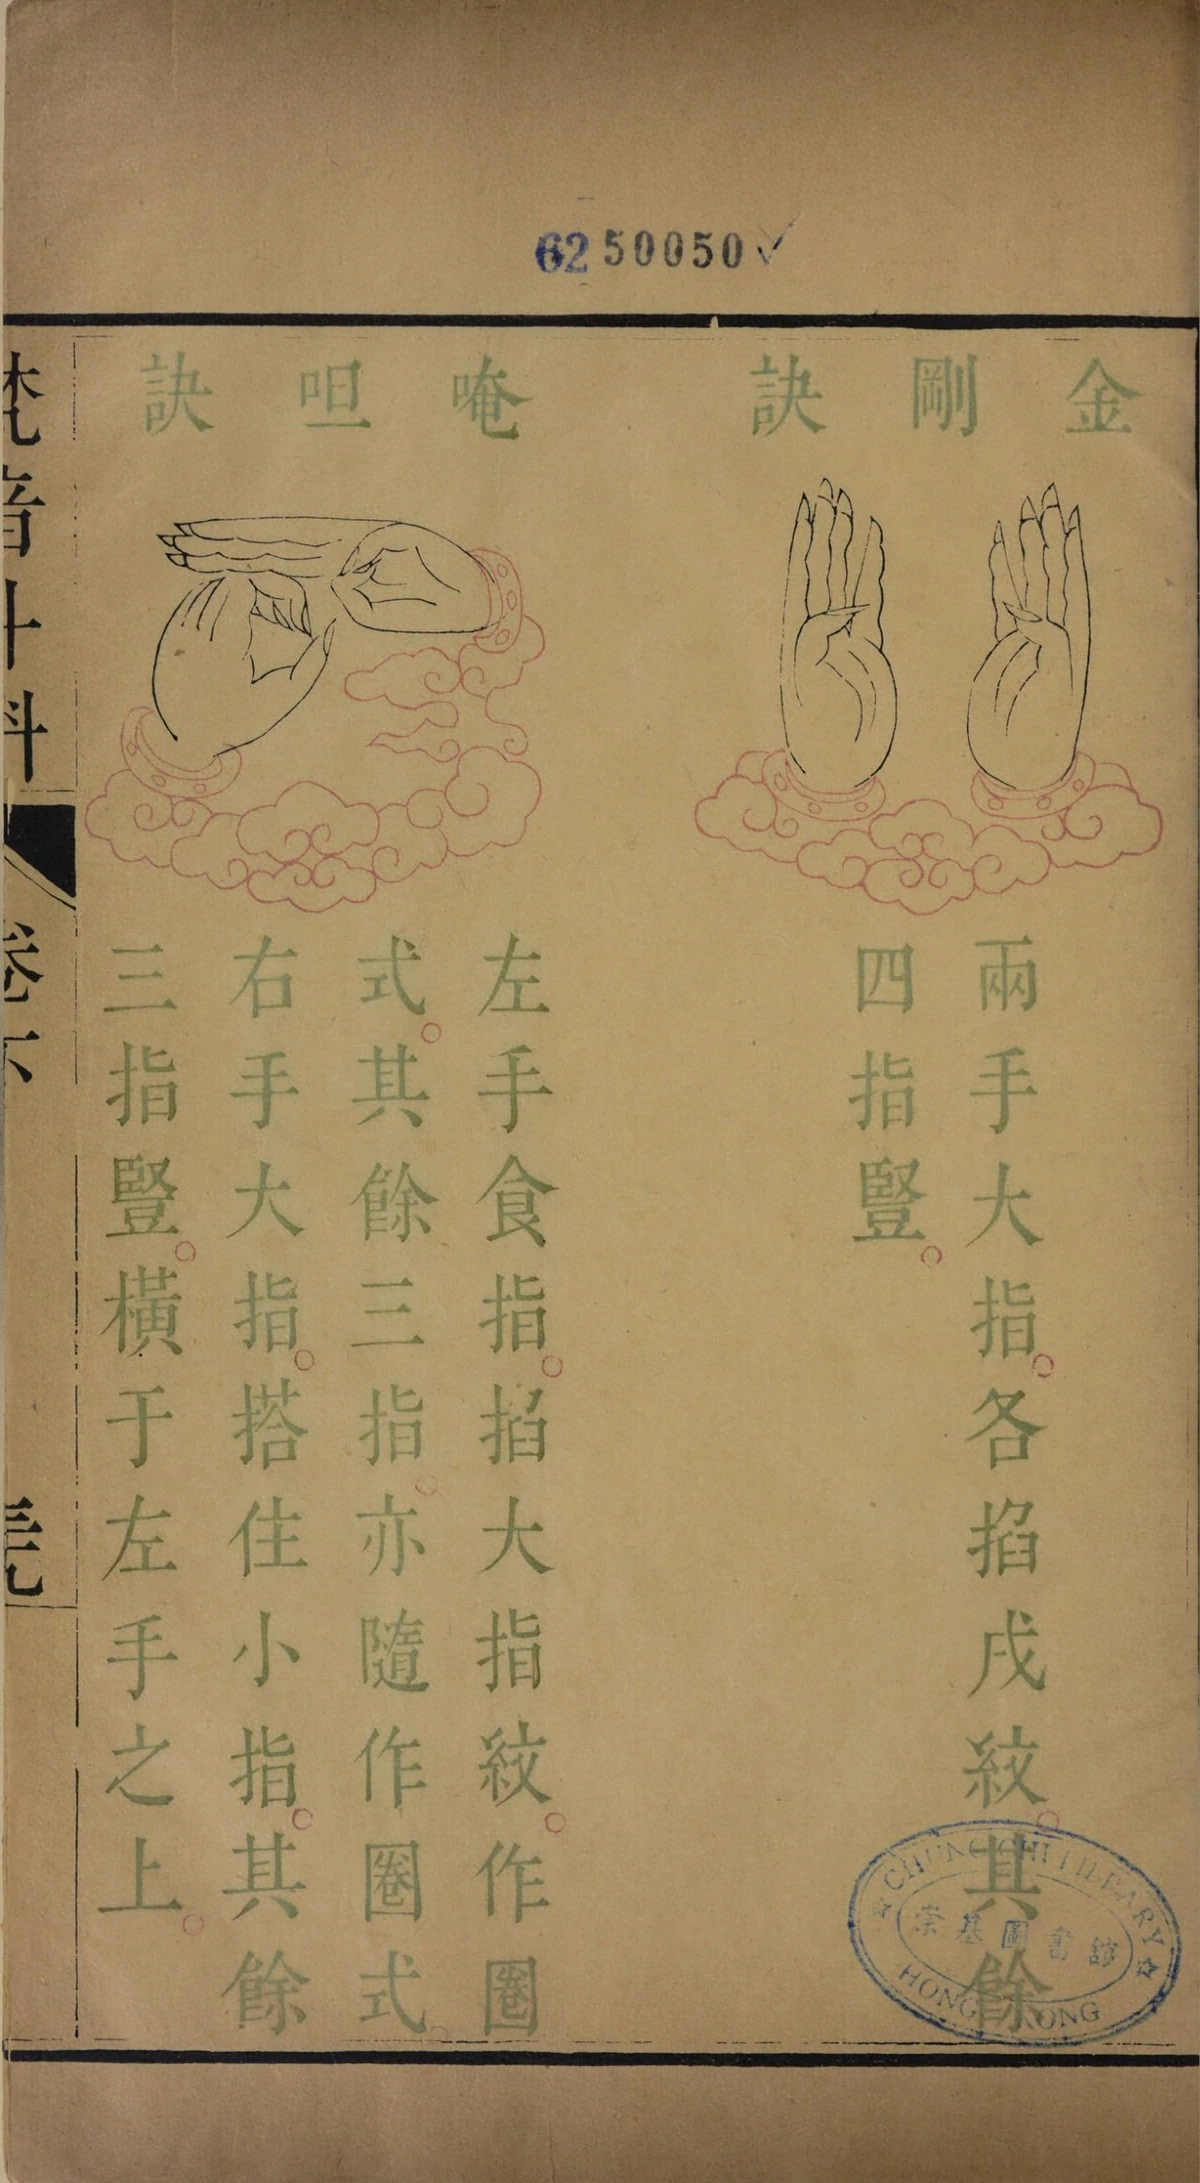 6250050
金剛訣
兩手大指。各掐戌紋。其餘
四指豎。
唵呾訣
左手食指。掐大指紋。作圈
式。其餘三指。亦隨作圈式。
右手大指。搭住小指。其餘
三指豎。橫于左手之上。
梵音斗科
卷下
CHUNG CHI LIBRARY
崇基圖書館
HONG KONG